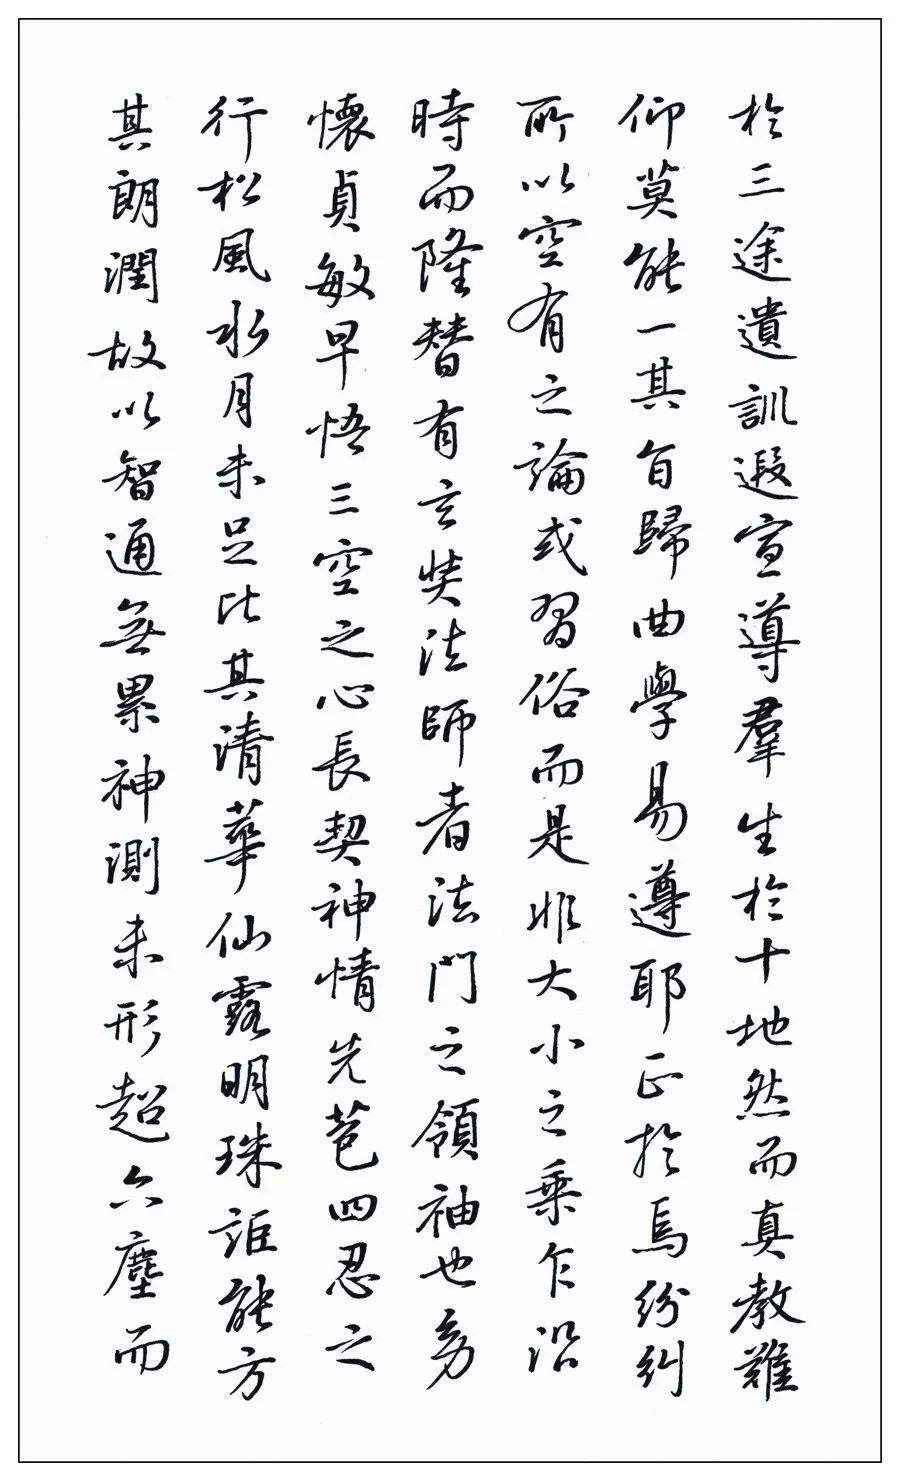 於三途遺訓遐宣導羣生於十地然而真教難
仰莫能一其旨歸曲學易遵耶正於焉紛糾
所以空有之論或習俗而是非大小之乘乍沿
時而隆替有玄奘法師者法門之領袖也幼
懷貞敏早悟三空之心長契神情先苞四忍之
行松風水月未足比其清華仙露明珠詎能方
其朗潤故以智通無累神測未形超六塵而